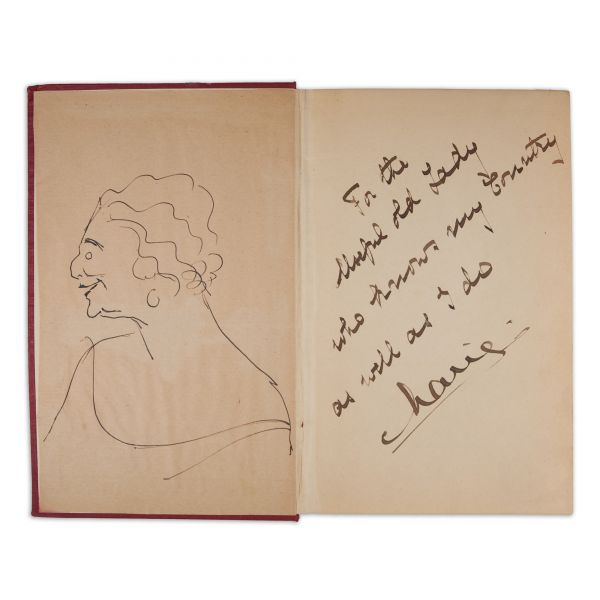 For the
useful old Lady
who knows my Country
as well as I do
Marie.